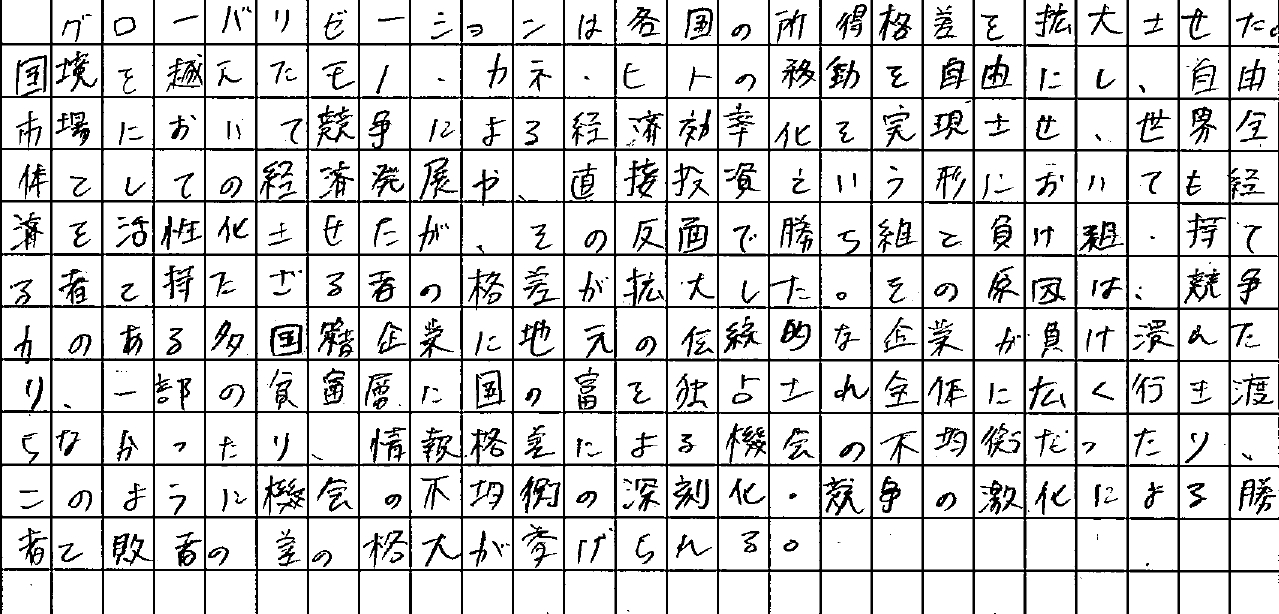 グローバリゼーションは各国の所得格差を拡大させた。
国境を越えたモノ・カネ・ヒトの移動を自由にし、自由
市場において競争による経済効率化を実現させ、世界全
体としての経済発展や、直接投資という形においても経
済を活性化させたが、その反面で勝ち組と負け組・持て
る者と持たざる者の格差が拡大した。その原因は、競争
力のある多国籍企業に地元の伝統的な企業が負け潰れた
り、一部の貧富層に国の富を独占され全体に広く行き渡
らなかったり、情報格差による機会の不均衡だったり、
このように機会の不均衡の深刻化・競争の激化による勝
者と敗者の差の格大が挙げられる。